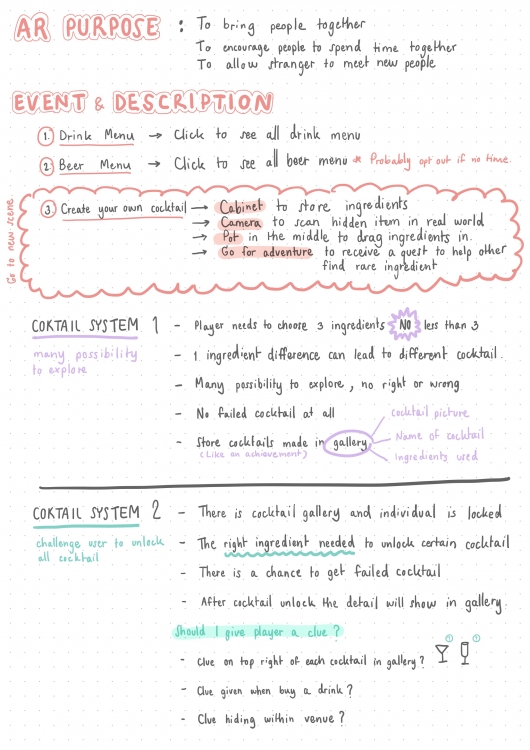 AR PURPOSE : To bring people together
To encourage people to spend time together
To allow stranger to meet new people
EVENT & DESCRIPTION
1. Drink Menu → Click to see all drink menu
2. Beer Menu → Click to see all beer menu * Probably opt out if no time.
Go to new scene
3. Create your own cocktail → Cabinet to store ingredients
→ Camera to scan hidden item in real world
→ Pot in the middle to drag ingredients in.
→ Go for adventure to receive a quest to help other
find rare ingredient
COKTAIL SYSTEM 1 - Player needs to choose 3 ingredients NO less than 3
many possibility
to explore
- 1 ingredient difference can lead to different cocktail.
- Many possibility to explore, no right or wrong
- No failed cocktail at all
- Store cocktails made in gallery
(Like an achievement)
Cocktail picture
Name of cocktail
Ingredients used
COKTAIL SYSTEM 2 - There is cocktail gallery and individual is locked
challenge user to unlock
all cocktail
- The right ingredient needed to unlock certain cocktail
- There is a chance to get failed cocktail
- After cocktail unlock the detail will show in gallery.
Should I give player a clue?
- Clue on top right of each cocktail in gallery?
- Clue given when buy a drink?
- Clue hiding within venue?